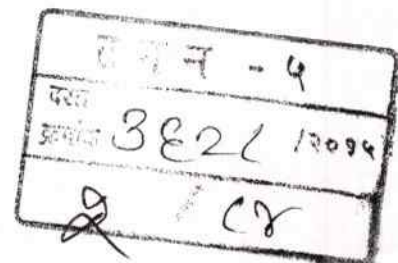 ट न न - ५
दस्त
क्रमांक ३६२८ /२०१५
२ / ८४